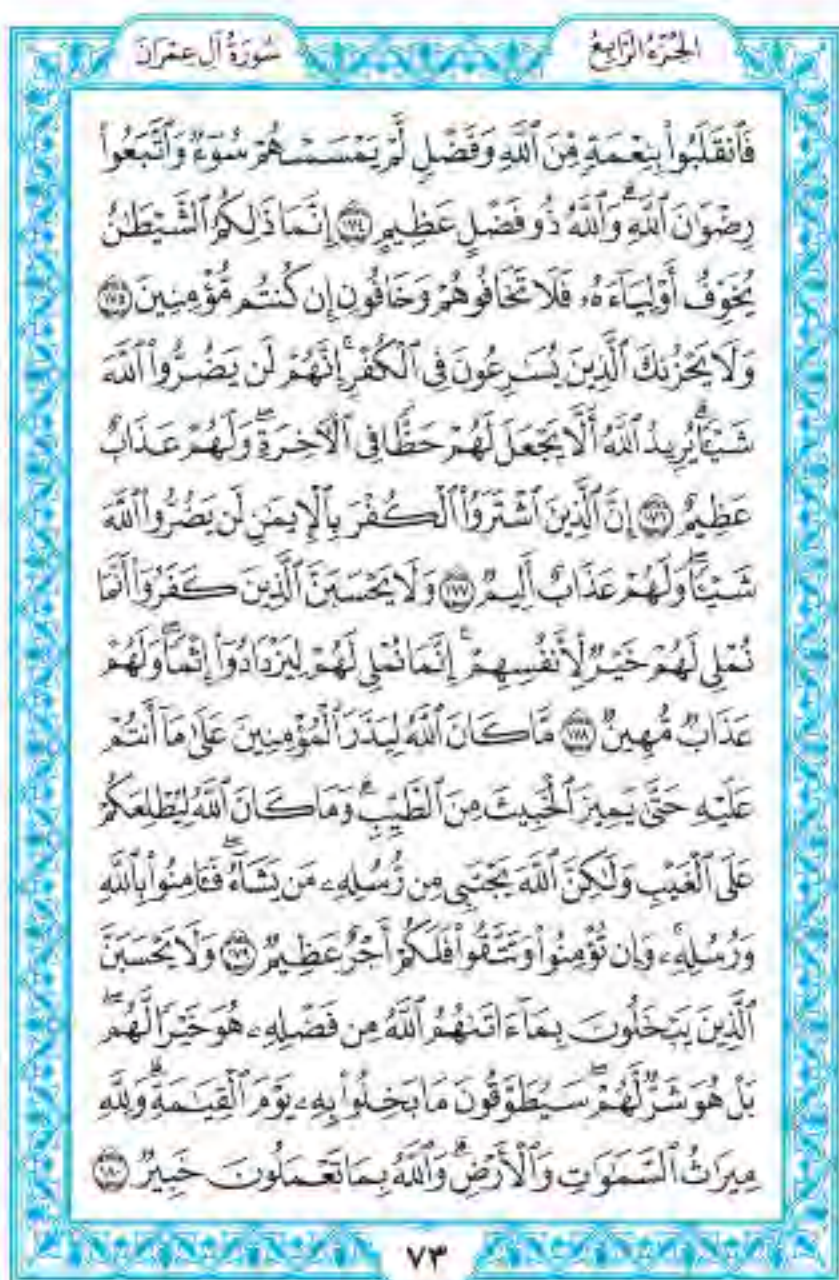 الجزء الرابع
سورة آل عمران
فَٱنقَلَبُوا۟ بِنِعْمَةٍ مِّنَ ٱللَّهِ وَفَضْلٍ لَّمْ يَمْسَسْهُمْ سُوٓءٌ وَٱتَّبَعُوا۟
رِضْوَٰنَ ٱللَّهِ ۗ وَٱللَّهُ ذُو فَضْلٍ عَظِيمٍ ١٧٤ إِنَّمَا ذَٰلِكُمُ ٱلشَّيْطَٰنُ
يُخَوِّفُ أَوْلِيَآءَهُۥ فَلَا تَخَافُوهُمْ وَخَافُونِ إِن كُنتُم مُّؤْمِنِينَ ١٧٥
وَلَا يَحْزُنكَ ٱلَّذِينَ يُسَٰرِعُونَ فِى ٱلْكُفْرِ ۚ إِنَّهُمْ لَن يَضُرُّوا۟ ٱللَّهَ
شَيْـًٔا ۗ يُرِيدُ ٱللَّهُ أَلَّا يَجْعَلَ لَهُمْ حَظًّا فِى ٱلْـَٔاخِرَةِ ۖ وَلَهُمْ عَذَابٌ
عَظِيمٌ ١٧٦ إِنَّ ٱلَّذِينَ ٱشْتَرَوُا۟ ٱلْكُفْرَ بِٱلْإِيمَٰنِ لَن يَضُرُّوا۟ ٱللَّهَ
شَيْـًٔا ۖ وَلَهُمْ عَذَابٌ أَلِيمٌ ١٧٧ وَلَا يَحْسَبَنَّ ٱلَّذِينَ كَفَرُوٓا۟ أَنَّمَا
نُمْلِى لَهُمْ خَيْرٌ لِّأَنفُسِهِمْ ۚ إِنَّمَا نُمْلِى لَهُمْ لِيَزْدَادُوٓا۟ إِثْمًا ۖ وَلَهُمْ
عَذَابٌ مُّهِينٌ ١٧٨ مَّا كَانَ ٱللَّهُ لِيَذَرَ ٱلْمُؤْمِنِينَ عَلَىٰ مَآ أَنتُمْ
عَلَيْهِ حَتَّىٰ يَمِيزَ ٱلْخَبِيثَ مِنَ ٱلطَّيِّبِ ۗ وَمَا كَانَ ٱللَّهُ لِيُطْلِعَكُمْ
عَلَى ٱلْغَيْبِ وَلَٰكِنَّ ٱللَّهَ يَجْتَبِى مِن رُّسُلِهِۦ مَن يَشَآءُ ۖ فَـَٔامِنُوا۟ بِٱللَّهِ
وَرُسُلِهِۦ ۚ وَإِن تُؤْمِنُوا۟ وَتَتَّقُوا۟ فَلَكُمْ أَجْرٌ عَظِيمٌ ١٧٩ وَلَا يَحْسَبَنَّ
ٱلَّذِينَ يَبْخَلُونَ بِمَآ ءَاتَىٰهُمُ ٱللَّهُ مِن فَضْلِهِۦ هُوَ خَيْرًا لَّهُم ۖ
بَلْ هُوَ شَرٌّ لَّهُمْ ۖ سَيُطَوَّقُونَ مَا بَخِلُوا۟ بِهِۦ يَوْمَ ٱلْقِيَٰمَةِ ۗ وَلِلَّهِ
مِيرَٰثُ ٱلسَّمَٰوَٰتِ وَٱلْأَرْضِ ۗ وَٱللَّهُ بِمَا تَعْمَلُونَ خَبِيرٌ ١٨٠
٧٣